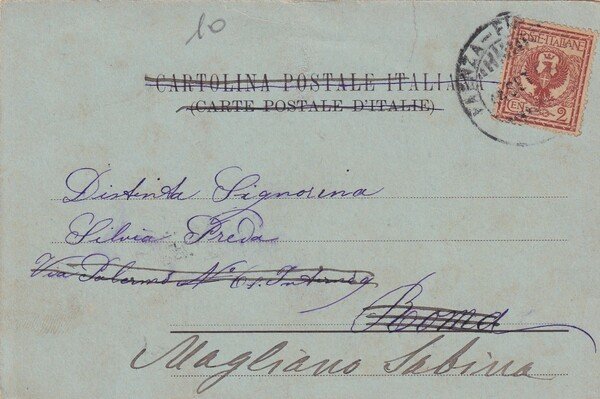 10
CARTOLINA POSTALE ITALIANA
(CARTE POSTALE D'ITALIE)
POSTE ITALIANE
CENT. 2
FAENZA-FI
Distinta Signorina
Silvia Freda
Via Palermo N° 61. Int
Roma
Magliano Sabina